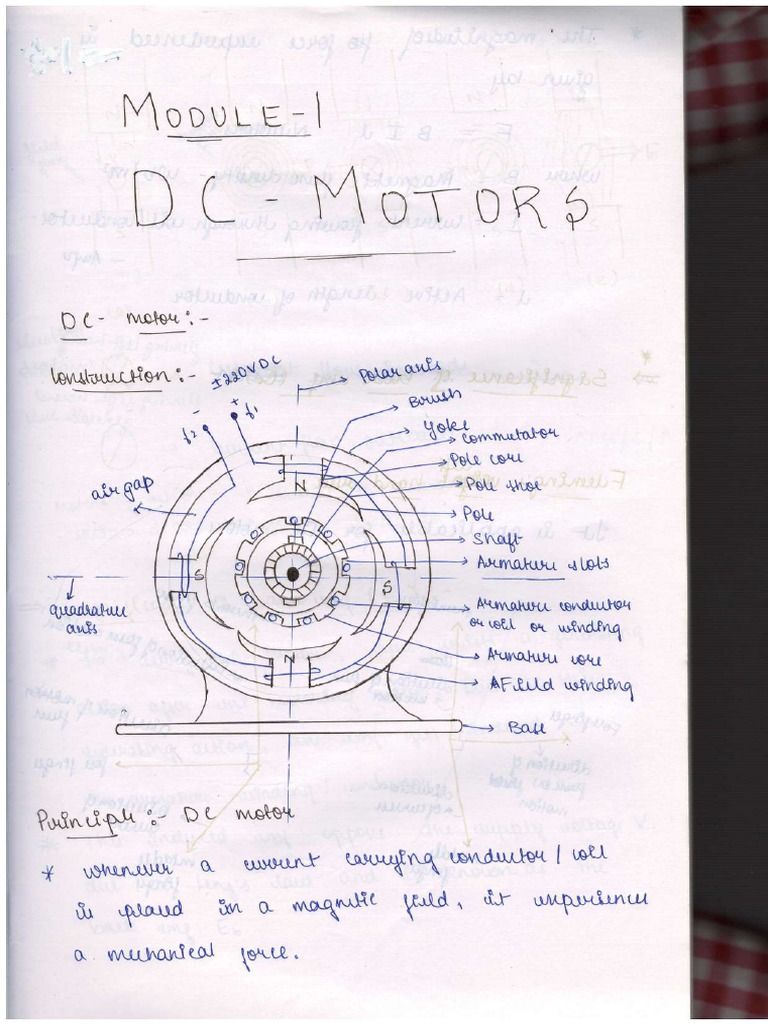 MODULE-1
DC-MOTORS
DC- motor:-
Construction:-
±220V DC
- +
f2 f1
Polar axis
Brush
Yoke
commutator
Pole core
Pole shoe
Pole
Shaft
Armature slots
Armature conductor
or coil or winding
Armature core
Field winding
Base
air gap
quadrature
axis
N
S
S
N
Principle:- DC motor
* whenever a current carrying conductor / coil
is placed in a magnetic field, it experiences
a mechanical force.